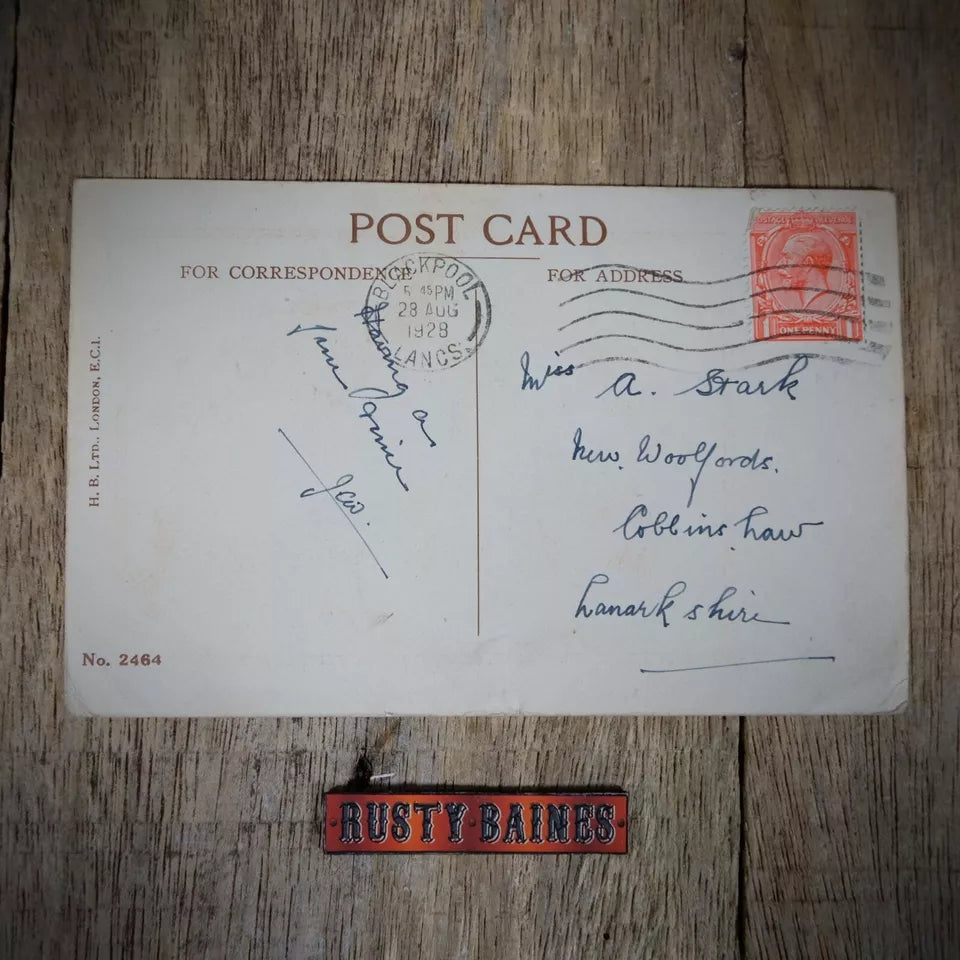 POST CARD
FOR CORRESPONDENCE
FOR ADDRESS
POSTAGE REVENUE
1 ONE PENNY 1
BLACKPOOL
5 45 PM
28 AUG
1928
LANCS
Having a
time
Miss A. Stark
New. Woolfords.
Cobbinshaw
Lanarkshire
H. B. LTD., LONDON, E.C.1.
No. 2464
RUSTY·BAINES